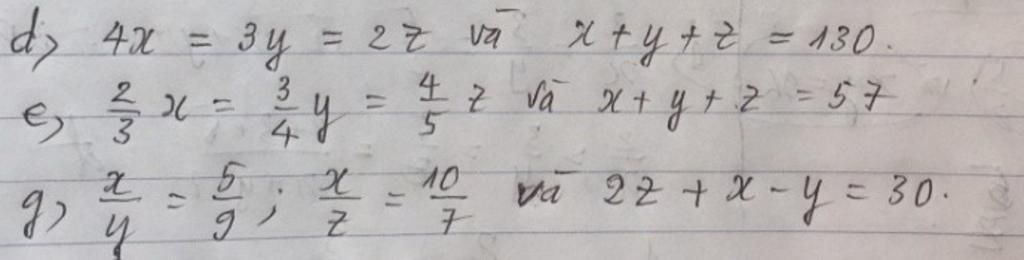 d) 4x = 3y = 2z và x + y + z = 130.
e) 2/3 x = 3/4 y = 4/5 z và x + y + z = 57
g) x/y = 5/9 ; x/z = 10/7 và 2z + x - y = 30.